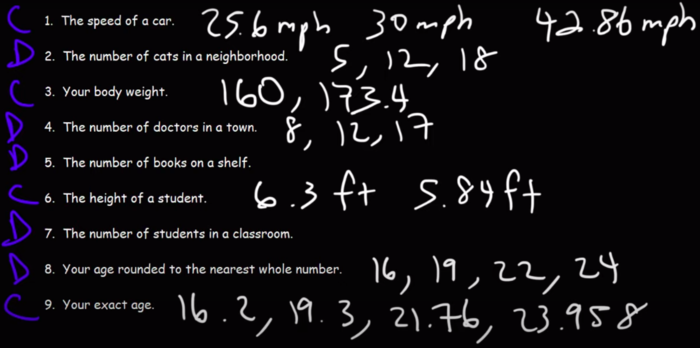 C 1. The speed of a car. 25.6 mph 30 mph 42.86 mph
D 2. The number of cats in a neighborhood. 5, 12, 18
C 3. Your body weight. 160, 173.4
D 4. The number of doctors in a town. 8, 12, 17
D 5. The number of books on a shelf.
C 6. The height of a student. 6.3 ft 5.84 ft
D 7. The number of students in a classroom.
D 8. Your age rounded to the nearest whole number. 16, 19, 22, 24
C 9. Your exact age. 16.2, 19.3, 21.76, 23.958